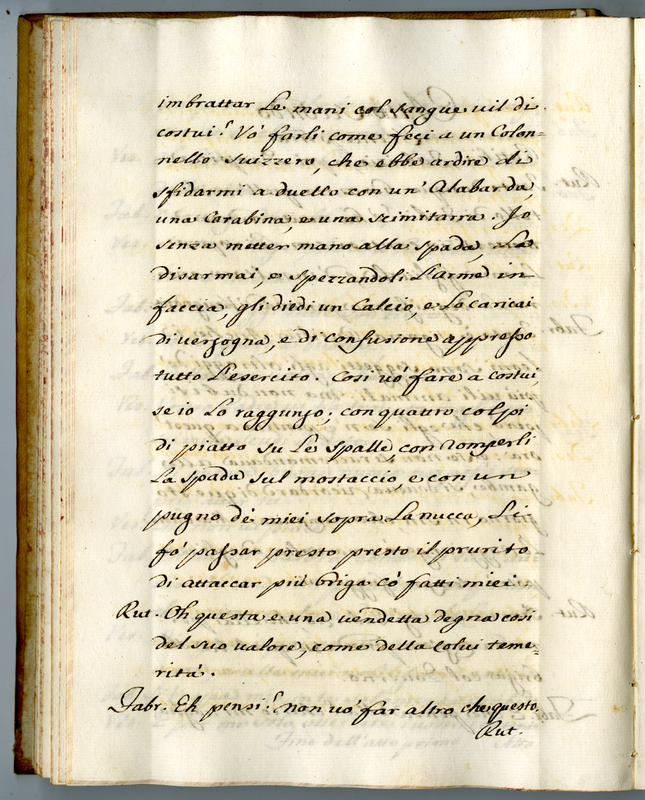 imbrattar Le mani col sangue vil di
costui? Vó farli come feci a un Colon=
nello svizzero, che ebbe ardire di
sfidarmi a duello con un' Alabarda,
una Carabina, e una scimitarra. Io
senza metter mano alla spada, La
disarmai, e spezzandoli L'arme in
faccia, gli diedi un Calcio, e Lo caricai
di vergogna, e di confusione appresso
tutto L'esercito. Cosi vó fare a costui,
se io Lo raggungo; con quattro colpi
di piatto su Le spalle, con romperli
La spada sul mostaccio, e con un
pugno dé miei sopra La nucca, Li
fó passar presto presto il prurito
di attaccar piú briga có fatti miei.
Rut. Oh questa e una vendetta degna cosi
del suo valore, come della colui teme=
ritá.
Fabr. Eh pensi? non vó far altro che questo.
Rut.